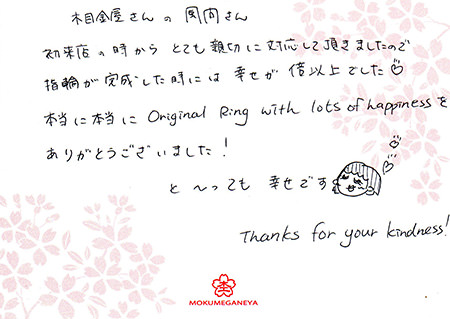 木目金屋さんの 関内さん
初来店の時から とても親切に対応して頂きましたので
指輪が完成した時には 幸せが倍以上でした
本当に本当に Original Ring with lots of happiness を
ありがとうございました!
と〜っても 幸せです
Thanks for your kindness!
MOKUMEGANEYA